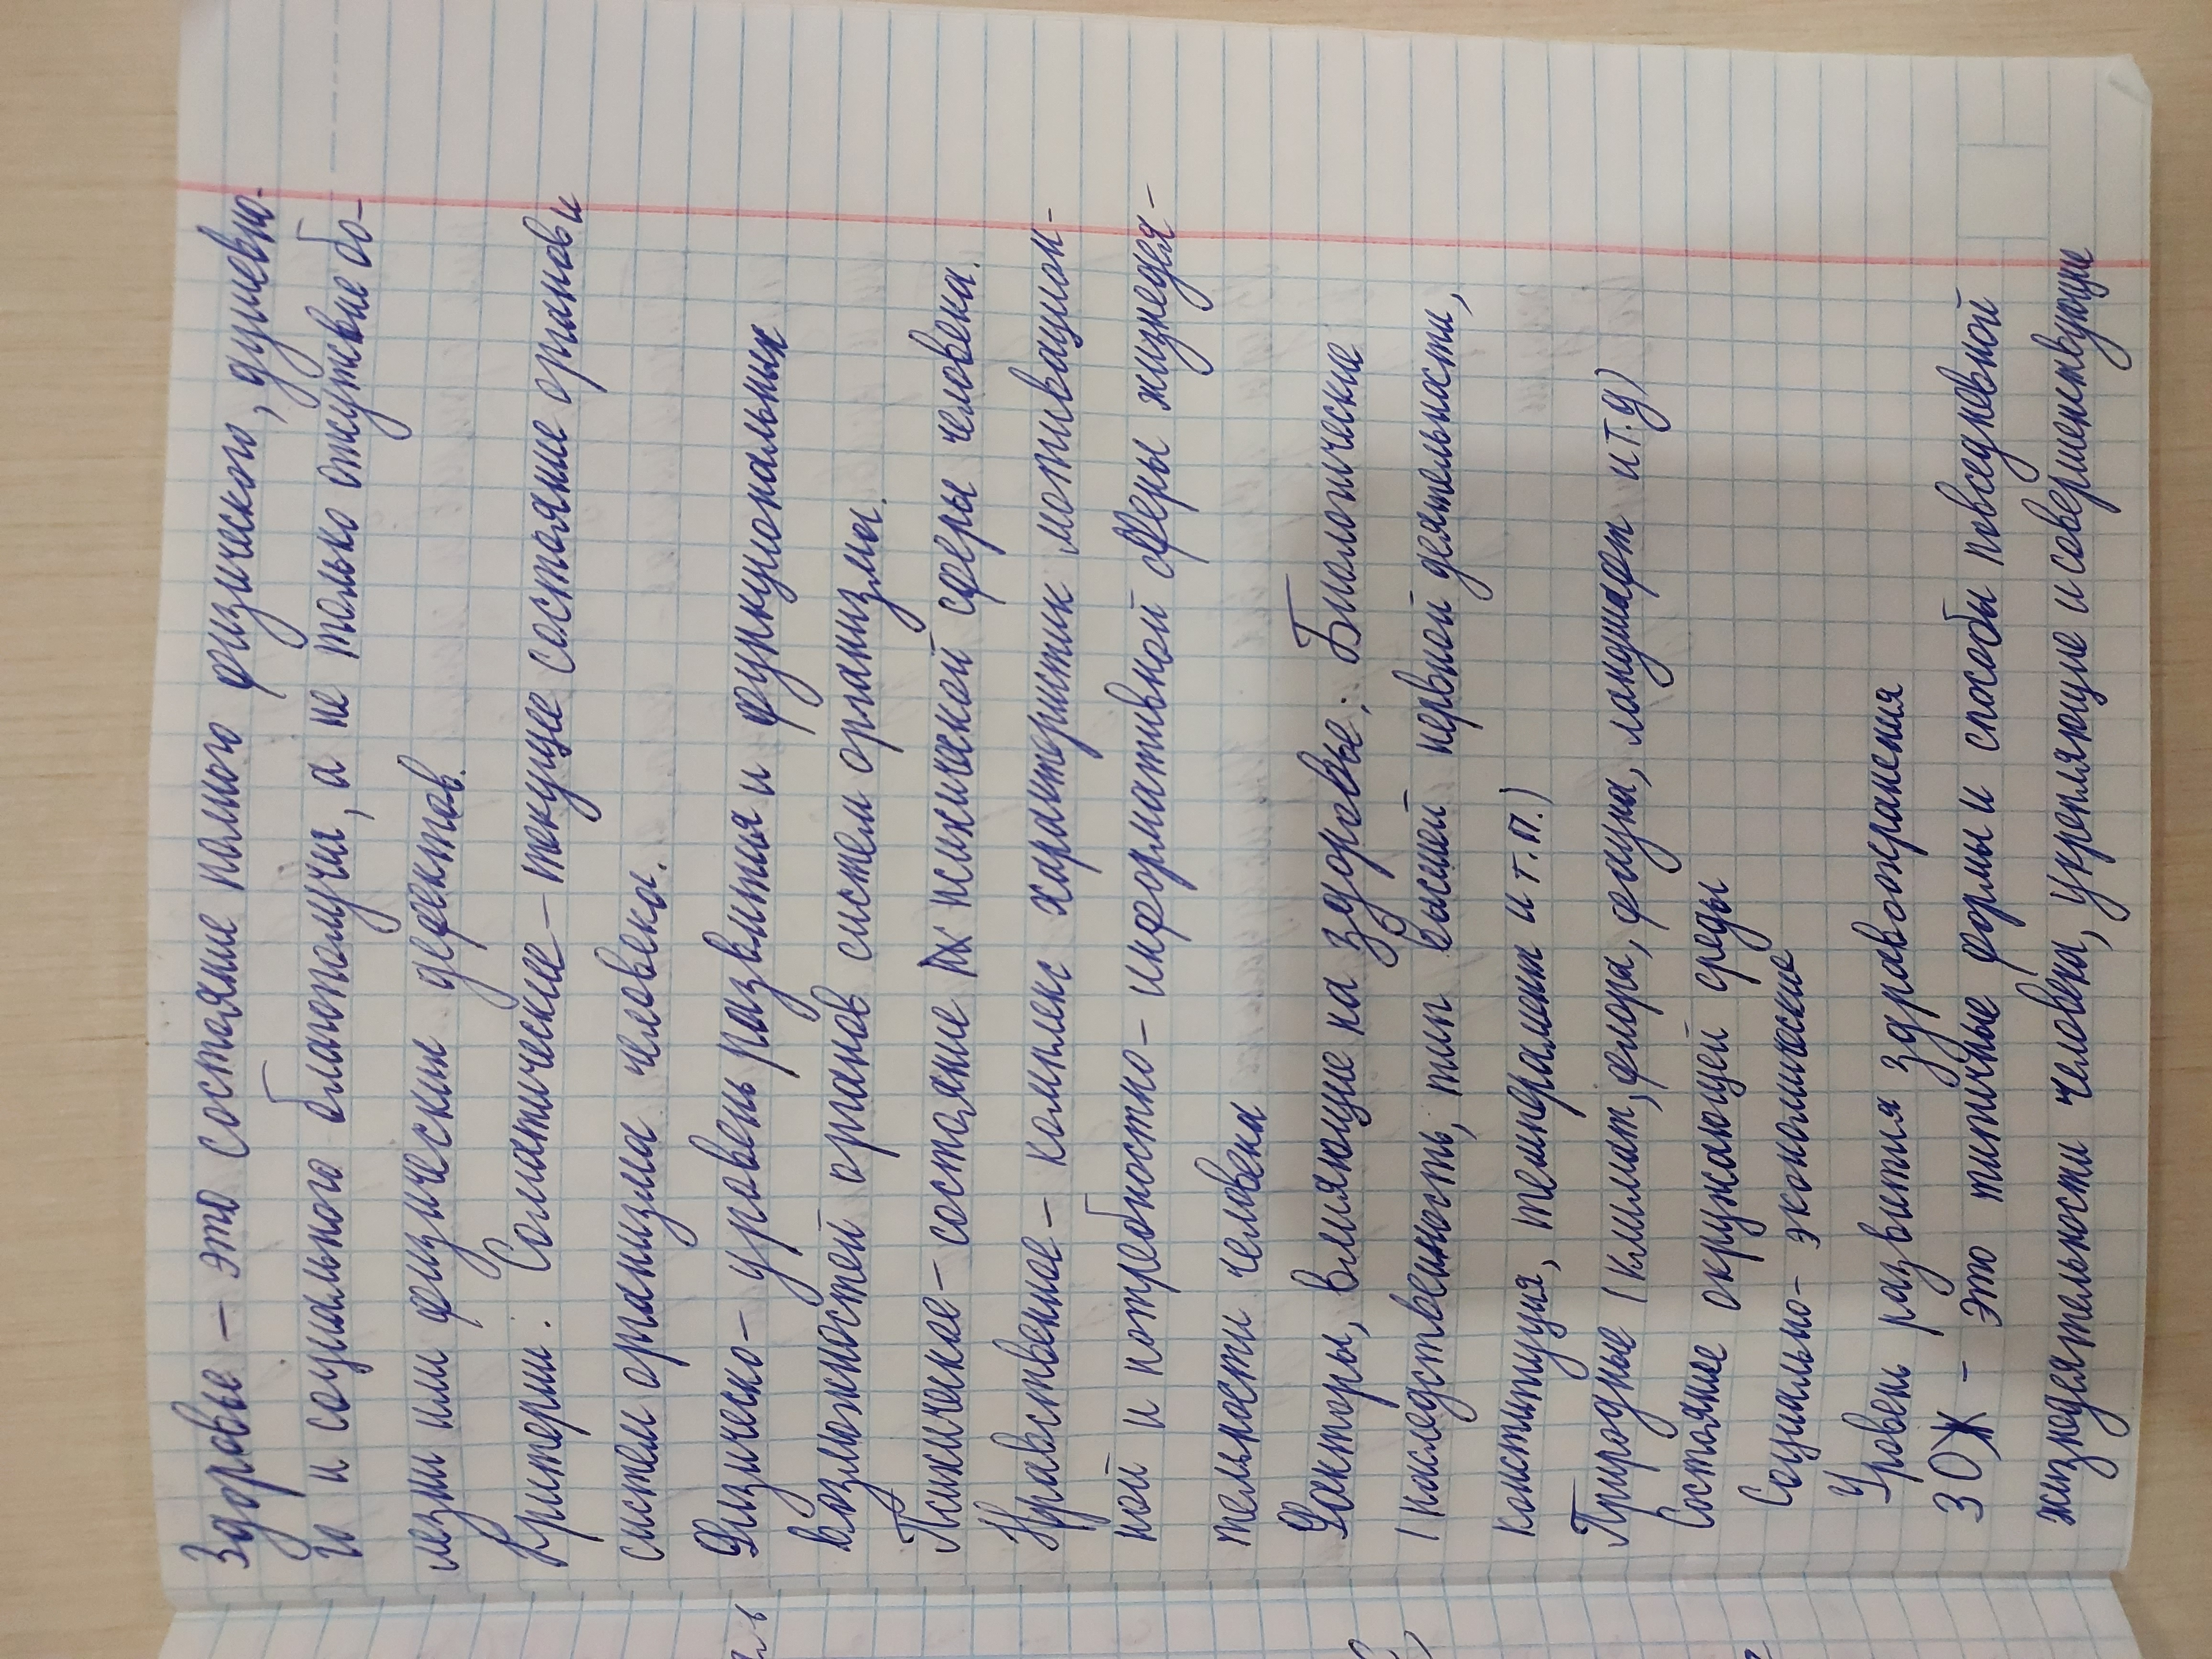 Здоровье – это состояние полного физического, душевно-
го и социального благополучия, а не только отсутствие бо-
лезни или физических дефектов.
Критерии. Соматическое – текущее состояние органов и
систем организма человека.
Физическо – уровень развития и функциональных
возможностей органов систем организма.
Психическое – состояние псих психической сферы человека.
Нравственное – комплекс характеристик мотивацион-
ной и потребностно – информативной сферы жизнедея-
тельности человека
Факторы, влияющие на здоровье: Биологические
(наследственность, тип высшей нервной деятельности,
конституция, темперамент и т.п.)
Природные (климат, флора, фауна, ландшафт и т.д)
Состояние окружающей среды
Социально – экономические
Уровень развития здравоохранения
ЗОЖ – это типичные формы и способы повседневной
жизнедеятельности человека, укрепляющие и совершенствующие